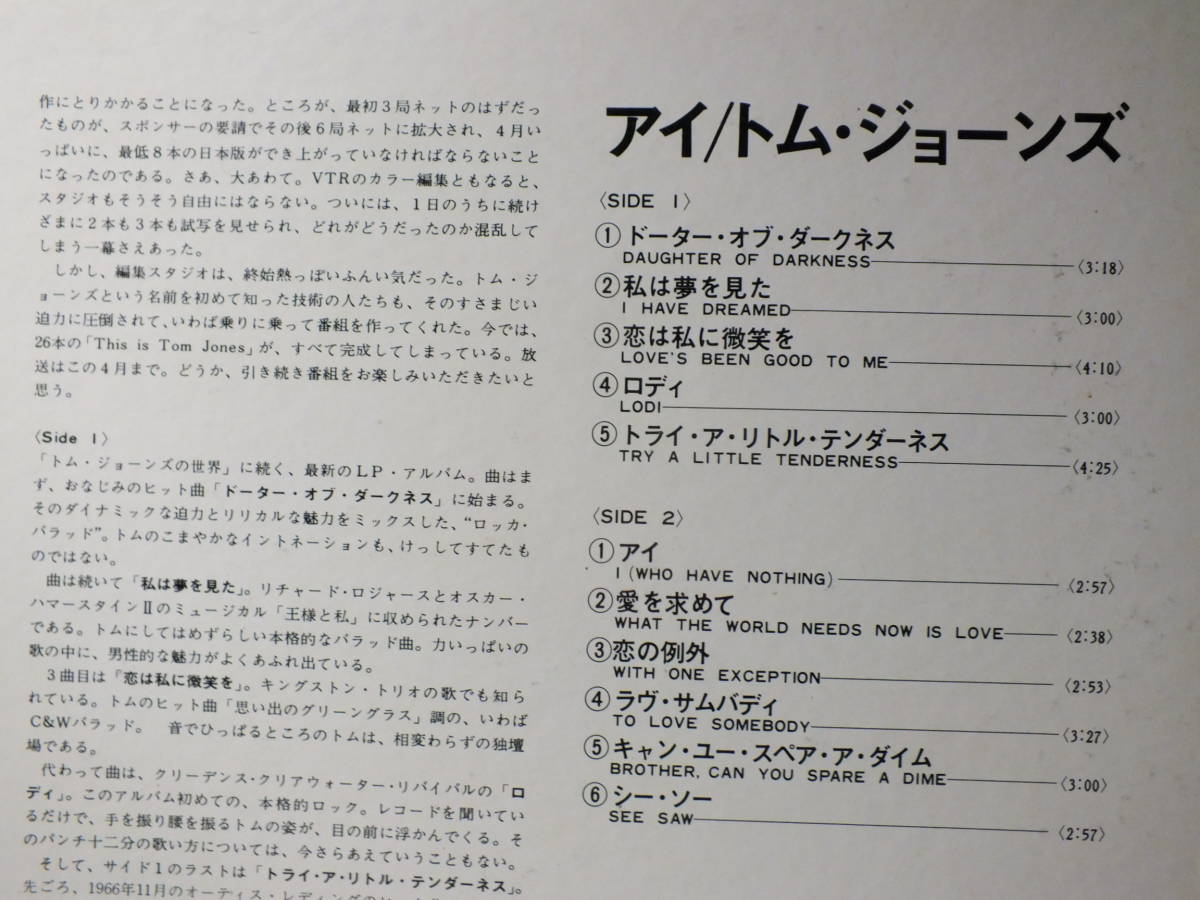 作にとりかかることになった。ところが、最初3局ネットのはずだっ
たものが、スポンサーの要請でその後6局ネットに拡大され、4月い
っぱいに、最低8本の日本版ができ上がっていなければならないこと
になったのである。さあ、大あわて。VTRのカラー編集ともなると、
スタジオもそうそう自由にはならない。ついには、1日のうちに続け
ざまに2本も3本も試写を見せられ、どれがどうだったのか混乱して
しまう一幕さえあった。
しかし、編集スタジオは、終始熱っぽいふんい気だった。トム・ジ
ョーンズという名前を初めて知った技術の人たちも、そのすさまじい
迫力に圧倒されて、いわば乗りに乗って番組を作ってくれた。今では、
26本の「This is Tom Jones」が、すべて完成してしまっている。放
送はこの4月まで。どうか、引き続き番組をお楽しみいただきたいと
思う。
〈Side 1〉
「トム・ジョーンズの世界」に続く、最新のLP・アルバム。曲はま
ず、おなじみのヒット曲「ドーター・オブ・ダークネス」に始まる。
そのダイナミックな迫力とリリカルな魅力をミックスした、“ロッカ・
バラッド”。トムのこまやかなイントネーションも、けっしてすてたも
のではない。
曲は続いて「私は夢を見た」。リチャード・ロジャースとオスカー・
ハマースタインIIのミュージカル「王様と私」に収められたナンバー
である。トムにしてはめずらしい本格的なバラッド曲。力いっぱいの
歌の中に、男性的な魅力がよくあふれ出ている。
3曲目は「恋は私に微笑を」。キングストン・トリオの歌でも知ら
れている。トムのヒット曲「思い出のグリーングラス」調の、いわば
C&Wバラッド。 音でひっぱるところのトムは、相変わらずの独壇
場である。
代わって曲は、クリーデンス・クリアウォーター・リバイバルの「ロ
ディ」。このアルバム初めての、本格的ロック。レコードを聞いてい
るだけで、手を振り腰を振るトムの姿が、目の前に浮かんでくる。そ
のパンチ十二分の歌い方については、今さらあえていうこともない。
そして、サイド1のラストは「トライ・ア・リトル・テンダーネス」。
先ごろ、1966年11月のオーティス・レディングの
アイ/トム・ジョーンズ
〈SIDE 1〉
①ドーター・オブ・ダークネス
DAUGHTER OF DARKNESS 〈3:18〉
②私は夢を見た
I HAVE DREAMED 〈3:00〉
③恋は私に微笑を
LOVE'S BEEN GOOD TO ME 〈4:10〉
④ロディ
LODI 〈3:00〉
⑤トライ・ア・リトル・テンダーネス
TRY A LITTLE TENDERNESS 〈4:25〉
〈SIDE 2〉
①アイ
I (WHO HAVE NOTHING) 〈2:57〉
②愛を求めて
WHAT THE WORLD NEEDS NOW IS LOVE 〈2:38〉
③恋の例外
WITH ONE EXCEPTION 〈2:53〉
④ラヴ・サムバディ
TO LOVE SOMEBODY 〈3:27〉
⑤キャン・ユー・スペア・ア・ダイム
BROTHER, CAN YOU SPARE A DIME 〈3:00〉
⑥シー・ソー
SEE SAW 〈2:57〉